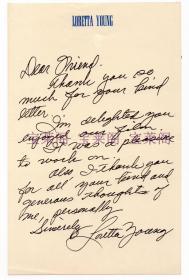 LORETTA YOUNG
Dear Friend.
Thank you so
much for your kind
letter.
I'm delighted you
enjoyed our film
it was a
to work on.
also I thank you
for all your kind and
generous thoughts of
me, personally
Sincerely
Loretta Young